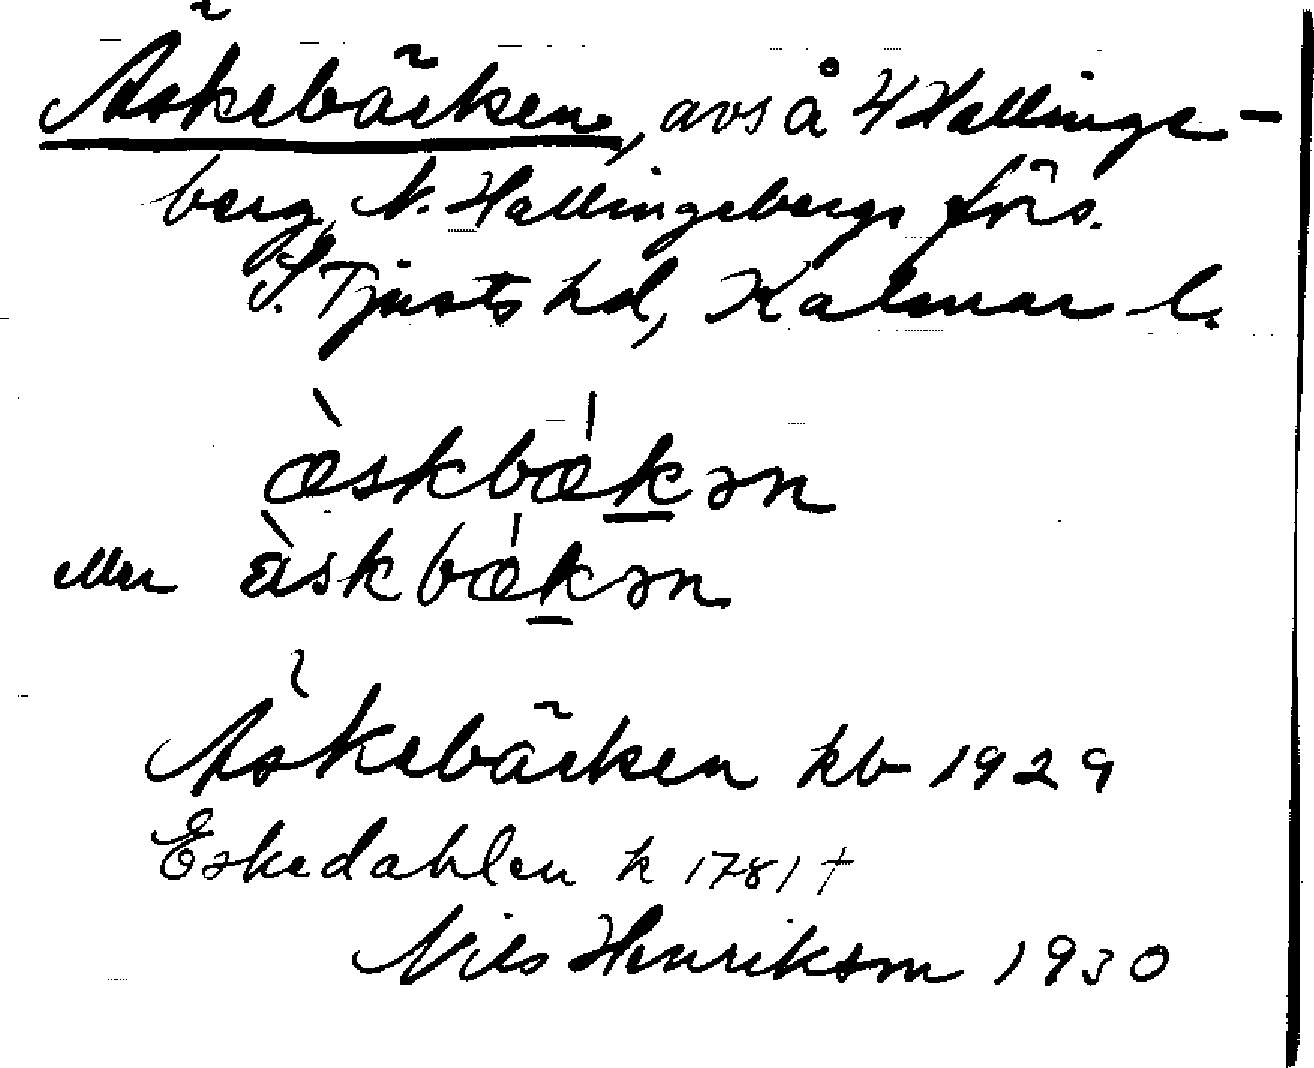 Äskebäcken, avs å 4 Hallings-
berg, N. Hallingebergs förs.
S. Tjusts hd, Kalmar l.
æ̀skbækən
eller àskbækən
Äskebäcken kb 1929
Eskedahlen k 1781 +
Nils Henrikson 1930